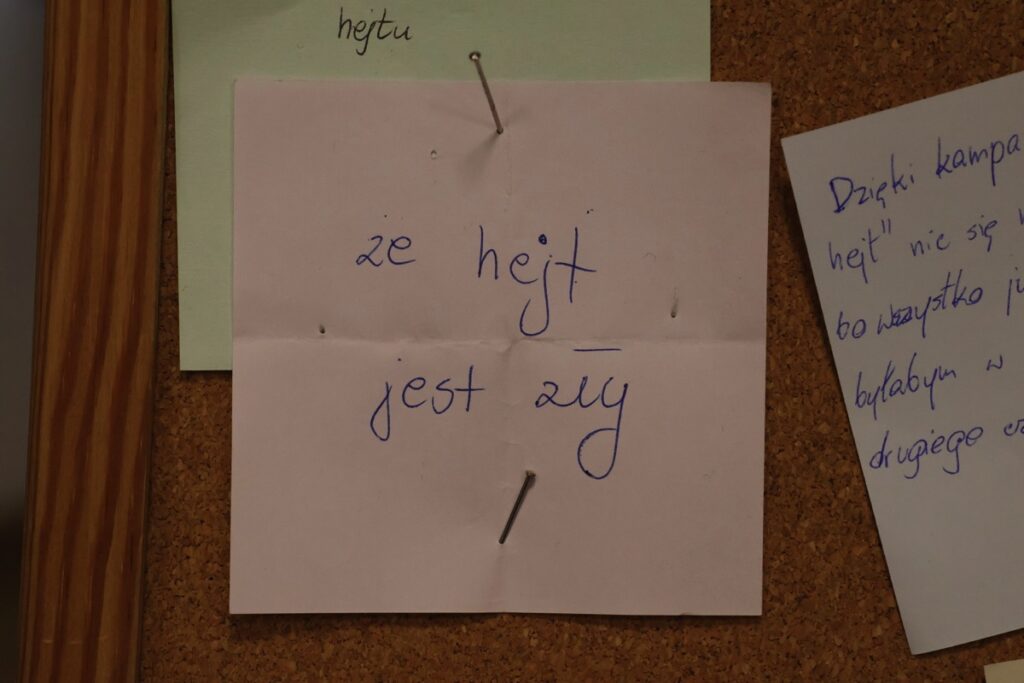 hejtu
że hejt
jest zły
Dzięki kampa
hejt" nie się
bo wszystko
byłabym w
drugiego